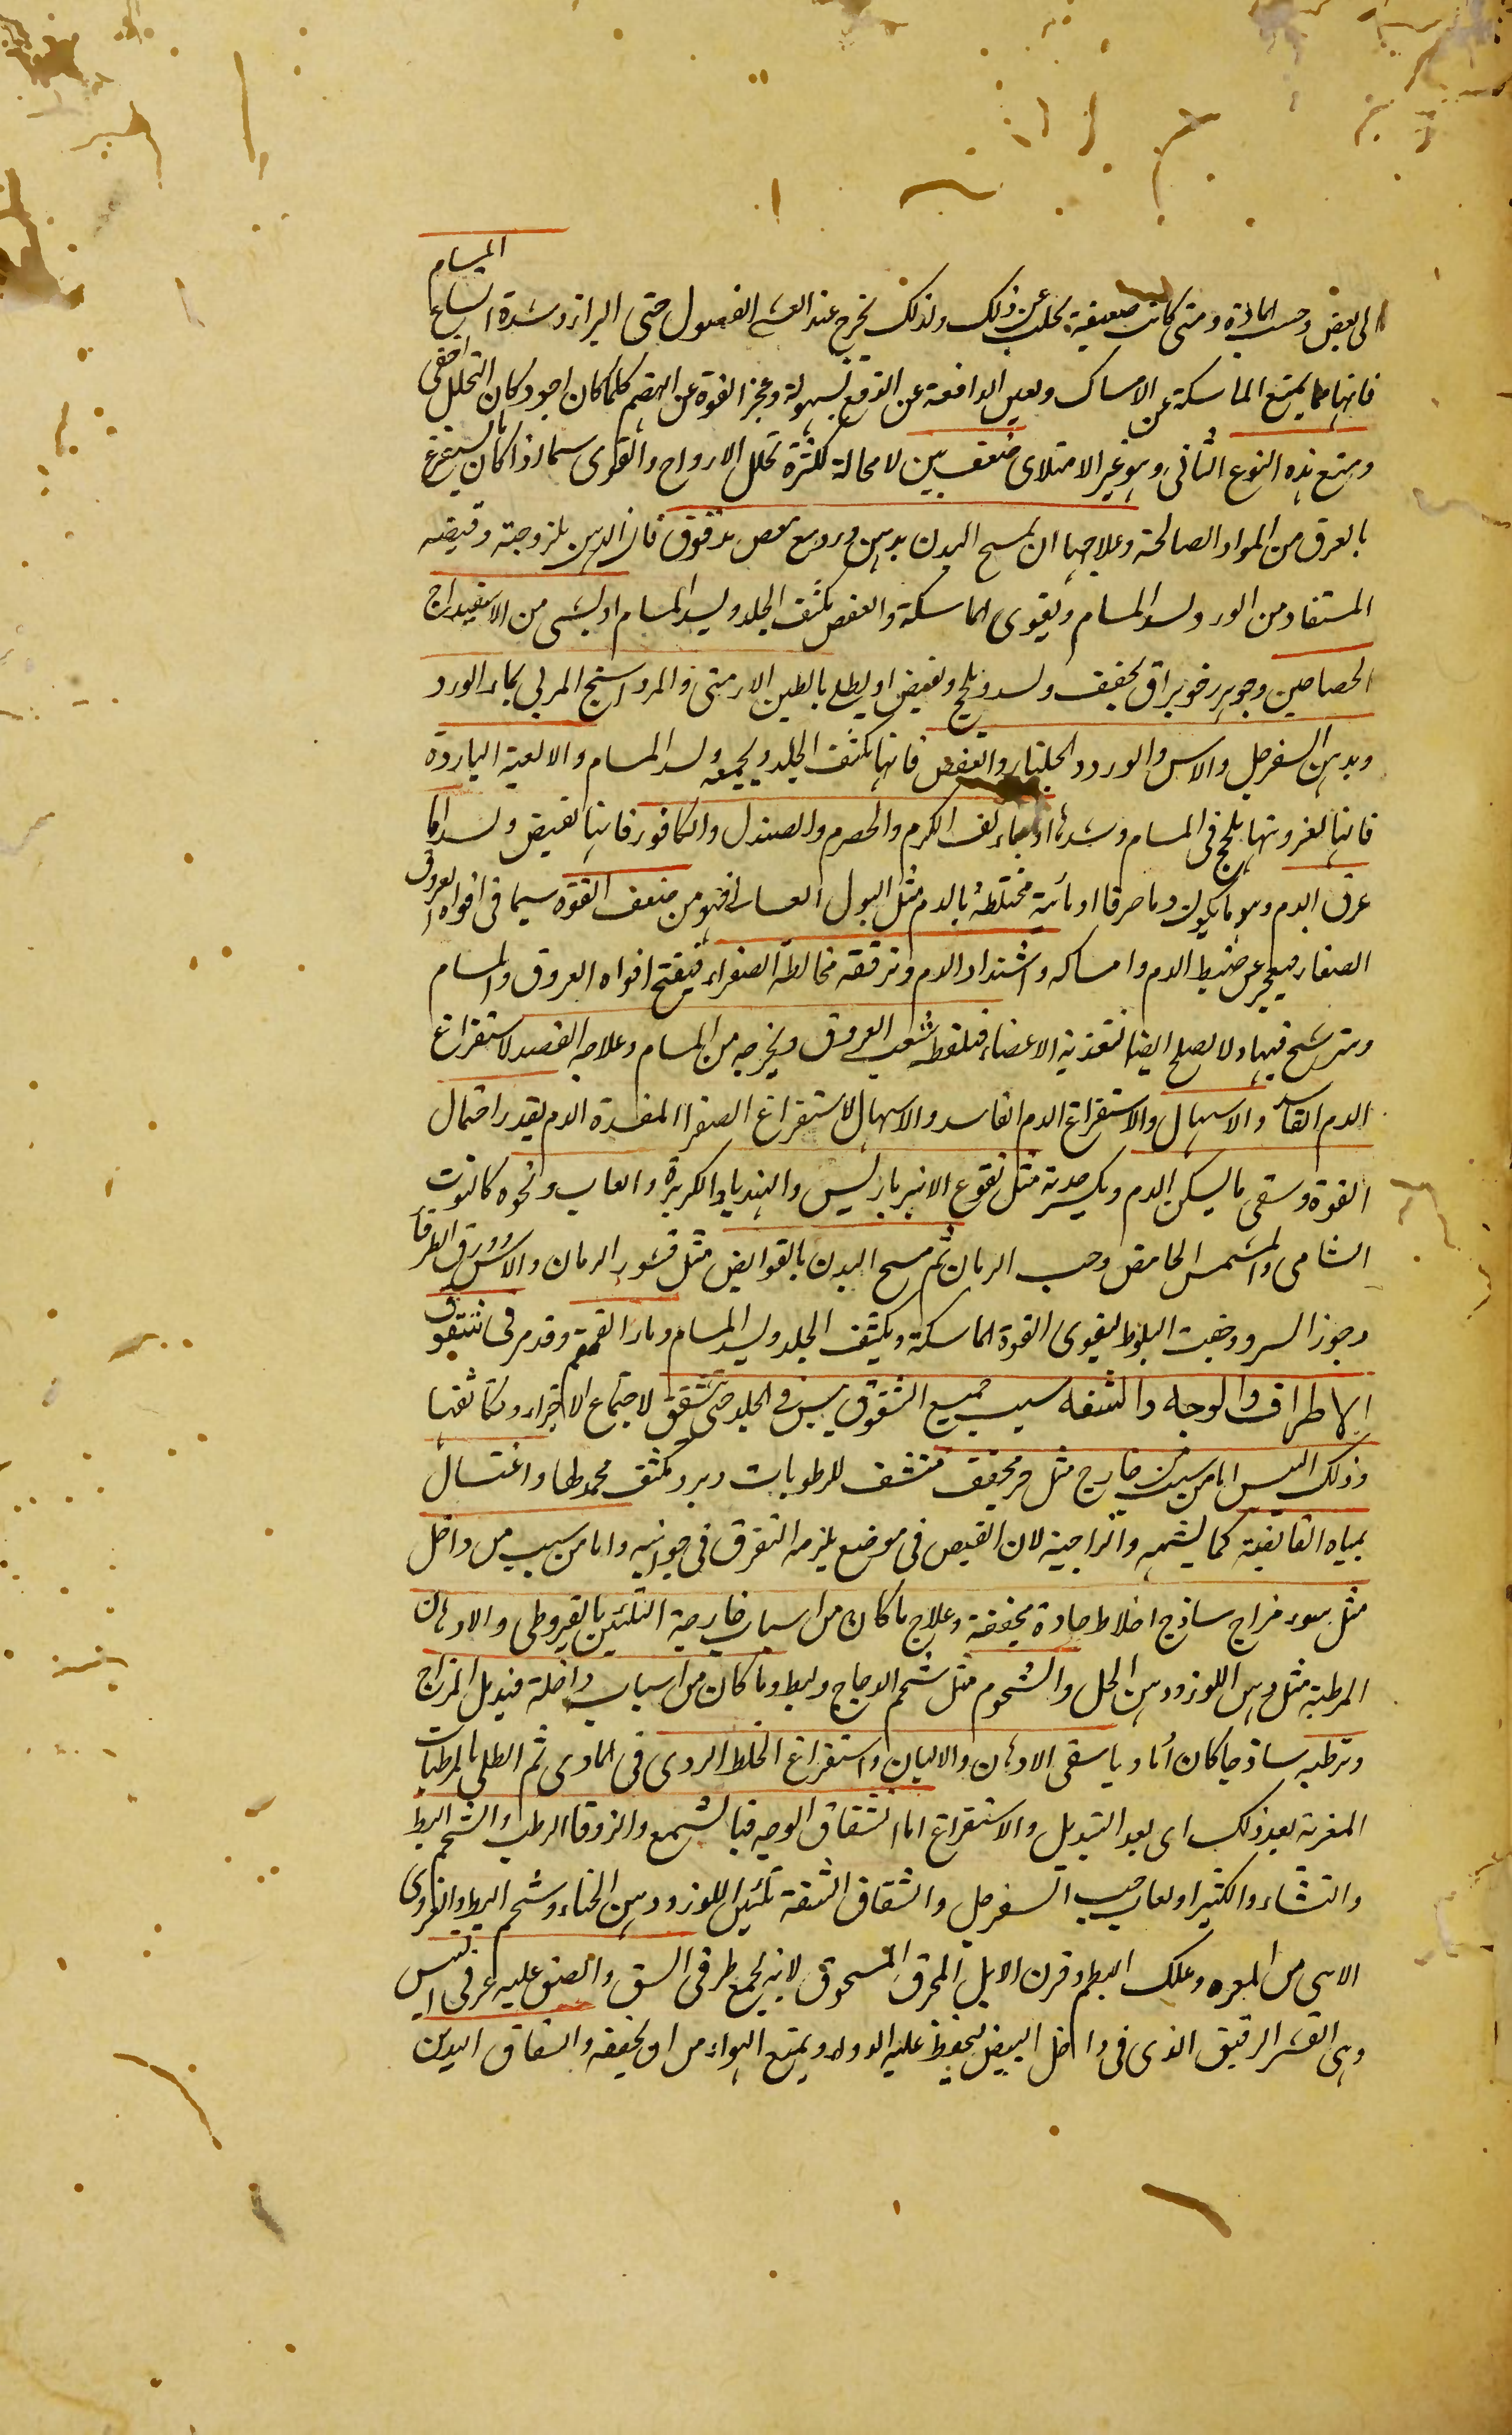 المسام
الى بعض وحسب المادة ومتى كانت ضعيفة يحلب عن ذلك ولذلك يخرج عند الغشى الفضول حتى البراز وشدة اتساع
فانها مما يمنع الماسكة عن الامساك ويعين الدافعة عن الدفع بسهولة وعجز القوة عن الهضم كلما كان اجود كان التحلل اخفى
ويتبع هذه النوع الثانى وهو غير الامتلاى ضعف بين لا محالة لكثرة تحلل الارواح والقوى سيما اذا كان يستفرغ
بالعرق من المواد الصالحة وعلاجها ان يمسح البدن بدهن ورد مع عفص مدقوق فان الدهن بلزوجته وقبضه
المستفاد من الورد يسد المسام ويقوى الماسكة والعفص يكثف الجلد ويسد المسام او بشى من الاسفيداج
الجصاصين وجوهر رخو براق يجفف ويسد ويلحج ويقبض او يطلى بالطين الارمنى والمرداسنج المربى بماء الورد
وبدهن السفرجل والاس والورد والجلنار والعفص فانها تكثف الجلد ويجمعه ويسد المسام والالعبة الباردة
فانها لغرويتها يلحج فى المسام وسدها او بماء لف الكرم والحصرم والصندل والكافور فانها تقبض ويسد اما
عرق الدم وهو ما يكون دما صرفا او مائية مختلطة بالدم مثل البول الغسالى فهو من ضعف القوة سيما فى افواه العروق
الصغار فيعجز عن ضبط الدم وامساكه واشتداد الدم وترققه مخالطة الصفراء فيفتح افواه العروق والمسام
ويترشح فيها ولا يصلح ايضا لتغذية الاعضاء فيلفظه شعب العروق ويخرجه من المسام وعلاجه الفصد لاستفراغ
الدم الفاسد والاسهال والاستفراغ الدم الفاسد والاسهال لاستفراغ الصفرا المفسدة الدم بقدر احتمال
القوة وسقى ما يسكن الدم ويكسر حدته مثل نقوع الانبرباريس والهندبا والكزبرة والعناب ونحوه كالتوت
الشامى والمشمش الحامض وحب الرمان ثم مسح البدن بالقوابض مثل قشور الرمان والاس وورق الطرفا
وجوز السرو وجفت البلوط ليقوى القوة الماسكة ويكثف الجلد ويسد المسام وماء القمقم وقد مر فى شقوق
الاطراف والوجه والشفه سبب جميع الشقوق يبس فى الجلد حتى يتشقق لاجتماع الاجزاء وتكاثفها
وذلك اليبس اما من سبب من خارج مثل حر مجفف منشف للرطوبات وبرد مكثف محمد لها واغتسال
بمياه القابضة كما يشبهه والزاجية لان القبض فى موضع يلزمه التفرق فى جوانبه واما من سبب من داخل
مثل سوء مزاج ساذج اخلاط حادة مجففة وعلاج ما كان من اسباب خارجية التليين بالقيروطى والادهان
المرطبة مثل دهن اللوز ودهن الحل والشحوم مثل شحم الدجاج والبط وما كان من اسباب داخلة فتبديل المزاج
وترطيبه ساذجا كان أو ماديا بسقى الادهان والالبان واستفراغ الخلط الردى فى المادى ثم الطلى بالمرطبات
المغرية بعد ذلك اى بعد التبديل والاستفراغ اما انشقاق الوجه فبالشمع والزوفا الرطب والشحم البط
والنشاء والكثيرا ولعاب حب السفرجل وانشقاق الشفة تليين اللوز ودهن الحناء وشحم البط والفروى
الاسى من وعلك البطم وقرن الايل المحرق المسحوق لانه يجمع طرفى الشق والصق عليه غرقى البيض
وهى القشر الرقيق الذى فى داخل البيض ليحفظ عليه الدواء ويمنع الهواء من ان يجففه وانشقاق اليدين